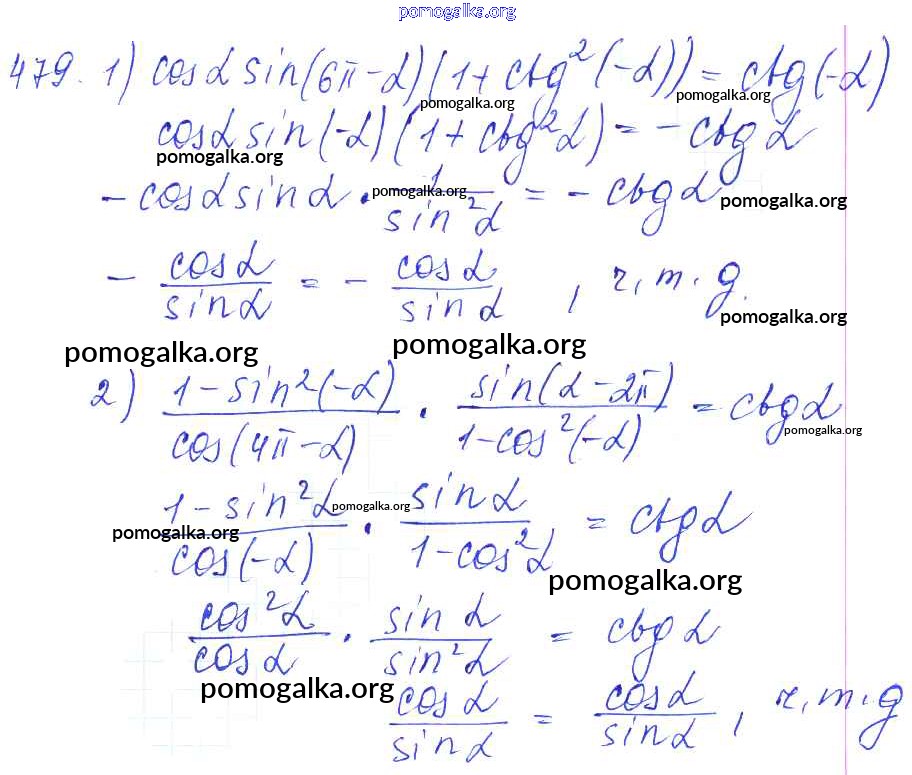 pomogalka.org
479. 1) cosα sin(6π-α)(1+ctg²(-α)) = ctg(-α)
pomogalka.org pomogalka.org
cosα sin(-α)(1+ctg²α) = -ctgα
pomogalka.org
-cosα sinα · 1/sin²α = -ctgα
pomogalka.org pomogalka.org
- cosα/sinα = - cosα/sinα , ч.т.д.
pomogalka.org
pomogalka.org pomogalka.org
2) (1-sin²(-α))/cos(4π-α) · sin(α-2π)/(1-cos²(-α)) = ctgα
pomogalka.org
(1-sin²α)/cos(-α) · sinα/(1-cos²α) = ctgα
pomogalka.org pomogalka.org
pomogalka.org
cos²α/cosα · sinα/sin²α = ctgα
pomogalka.org
cosα/sinα = cosα/sinα , ч.т.д